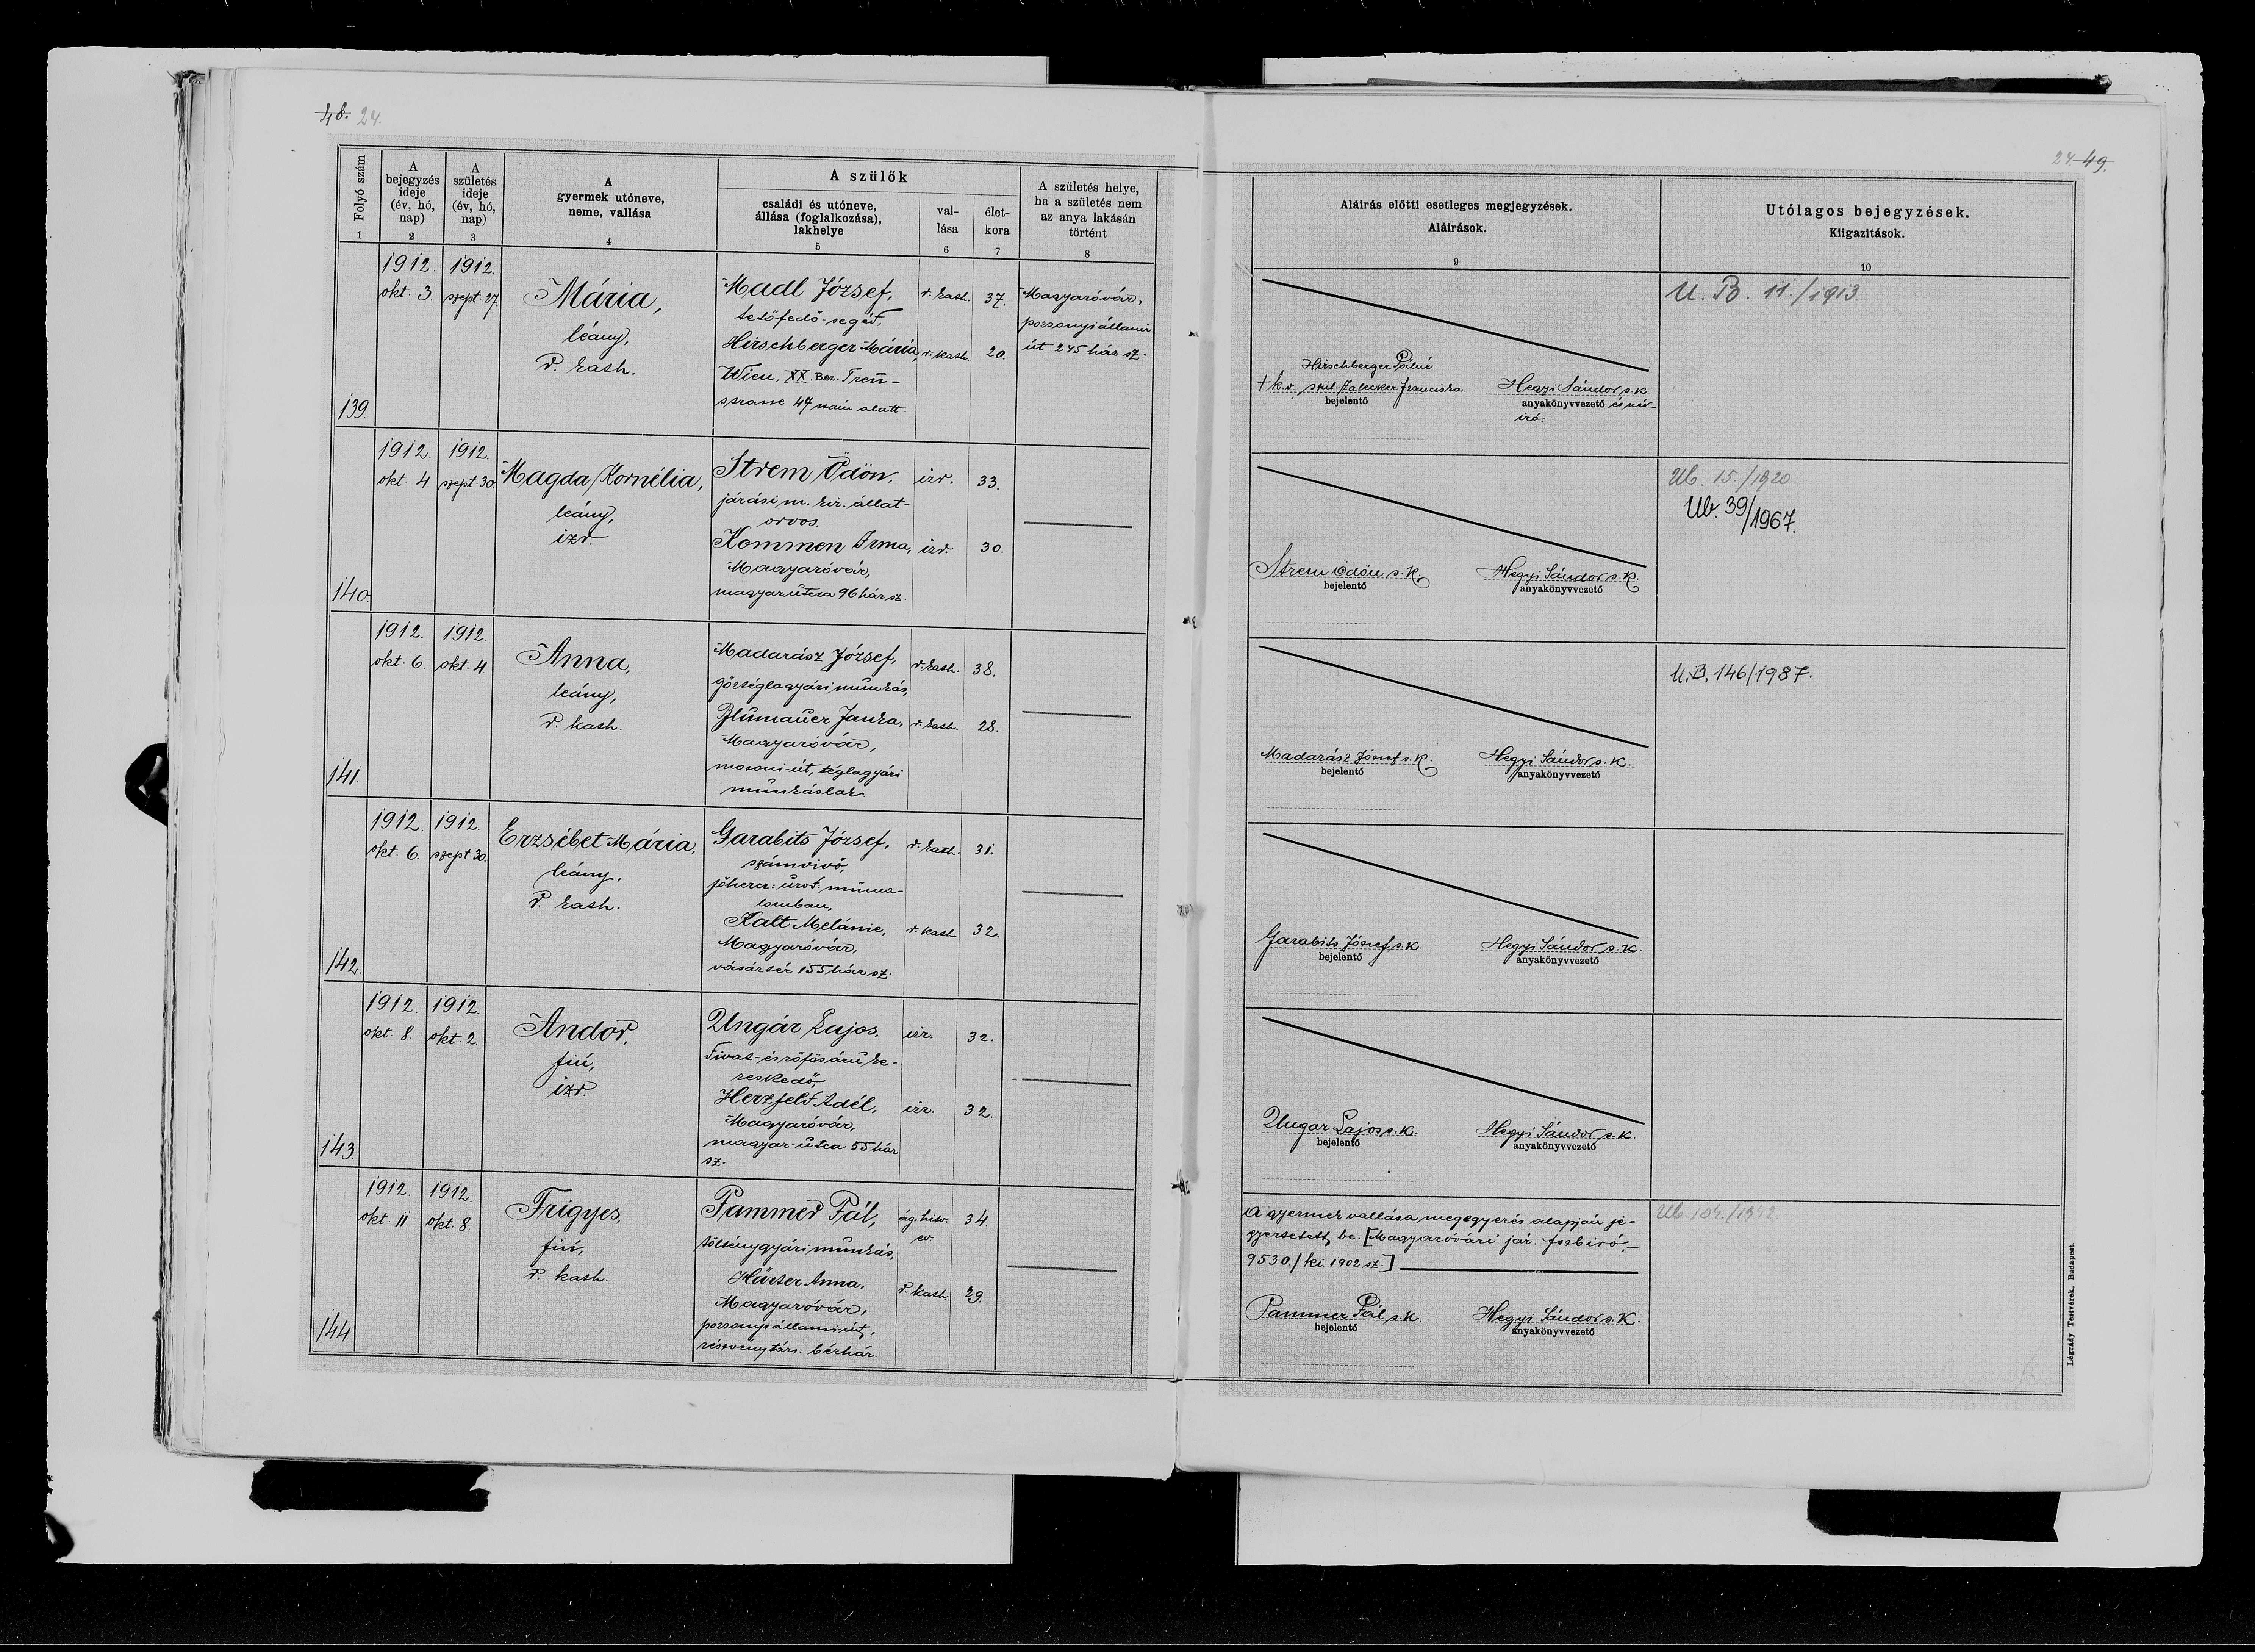 48. 24.
24 49.
Folyó szám
1
A
bejegyzés
ideje
(év, hó,
nap)
2
A
születés
ideje
(év, hó,
nap)
3
A
gyermek utóneve,
neme, vallása
4
A szülők
családi és utóneve,
állása (foglalkozása),
lakhelye
5
val-
lása
6
élet-
kora
7
A születés helye,
ha a születés nem
az anya lakásán
történt
8
Aláirás előtti esetleges megjegyzések.
Aláirások.
9
Utólagos bejegyzések.
Kiigazitások.
10
139.
1912.
okt. 3.
1912.
szept. 27.
Mária,
leány,
r. kath.
Madl József,
tetőfedő-segéd,
Hirschberger Mária,
Wien, XX. Bez.
strasse 47 szám alatt.
r. kath. 37.
r. kath. 20.
Magyaróvár,
pozsonyi állami
út 245 ház sz.
Hirschberger Pálné
+ k. v. szül. Zalecker Franciska
bejelentő
Hegyi Sándor s. k.
anyakönyvvezető és név-
iró.
U. B. 11./1913.
140.
1912.
okt. 4
1912.
szept. 30
Magda Kornélia,
leány,
izr.
Strem Ödön,
járási m. kir. állat-
orvos.
Kommen Irma,
Magyaróvár,
magyar utca 96 ház sz.
izr. 33.
izr. 30.
Strem Ödön s. k.
bejelentő
Hegyi Sándor s. k.
anyakönyvvezető
Ub. 15./1920
Ub. 39/1967.
141
1912.
okt. 6.
1912.
okt. 4
Anna,
leány,
r. kath.
Madarász József,
gőztéglagyári munkás,
Blumauer Janka,
Magyaróvár,
mosoni-út, téglagyári
munkáslak.
r. kath. 38.
r. kath. 28.
Madarász József s. k.
bejelentő
Hegyi Sándor s. k.
anyakönyvvezető
U. B. 146/1987.
142.
1912.
okt. 6.
1912.
szept. 30.
Erzsébet Mária,
leány,
r. kath.
Garabits József,
számvivő,
főherc: urod. műma-
lomban,
Kalt Melánie,
Magyaróvár,
vásártér 155 ház sz.
r. kath. 31.
r. kath. 32.
Garabits József s. k.
bejelentő
Hegyi Sándor s. k.
anyakönyvvezető
143.
1912.
okt. 8
1912.
okt. 2.
Andor,
fiú,
izr.
Ungár Lajos,
divat- és rőfösáru ke-
reskedő,
Herzfeld Adél,
Magyaróvár,
magyar-utca 55 ház
sz.
izr. 32.
izr. 32.
Ungar Lajos s. k.
bejelentő
Hegyi Sándor s. k.
anyakönyvvezető
144
1912.
okt. 11
1912.
okt. 8.
Frigyes,
fiú,
r. kath.
Pammer Pál,
tölténygyári munkás,
Anna,
Magyaróvár,
pozsonyi állami-út,
részvénytárs: bérház.
ág. hitv.
ev.
34.
r. kath. 29.
A gyermek vallása megegyezés alapján je-
gyeztetett be. [Magyaróvári jár. főszbiró,-
9530./ki. 1902 sz.]
Pammer Pál s. k.
bejelentő
Hegyi Sándor s. k.
anyakönyvvezető
Ub. 104./1942
Légrády Testvérek, Budapest.